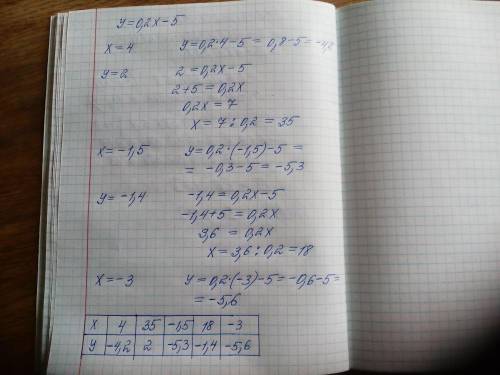 y=0,2x-5
x=4 y=0,2·4-5= 0,8-5=-4,2
y=2 2=0,2x-5
2+5=0,2x
0,2x=7
x=7:0,2=35
x=-1,5 y=0,2·(-1,5)-5=
= -0,3-5=-5,3
y=-1,4 -1,4=0,2x-5
-1,4+5=0,2x
3,6 =0,2x
x=3,6:0,2=18
x=-3 y=0,2·(-3)-5=-0,6-5=
=-5,6
x 4 35 -1,5 18 -3
y -4,2 2 -5,3 -1,4 -5,6